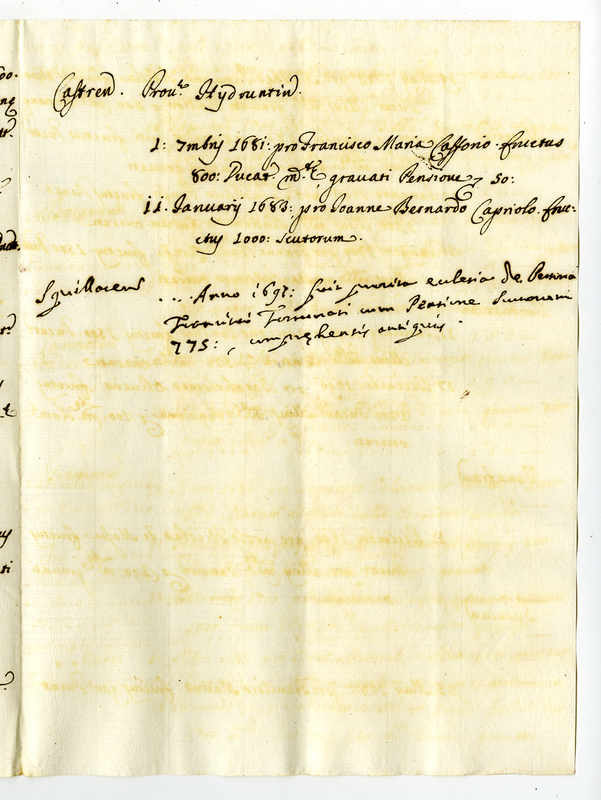 Castren. Prov.^e Hydruntin.
1: 7mbrij 1681: pro Francisco Maria Cassorio. fructus
800: Ducat. m.^te gravati Pensione 50:
11. Januarij 1683: pro Joanne Bernardo Capriolo. fruc-
ctus 1000: scutorum.
Squillacens .... Anno 1697: fuit provita ecclesia de Persona
Fortunati cum Pensione Scutorum
775: comprehensis antiquis.